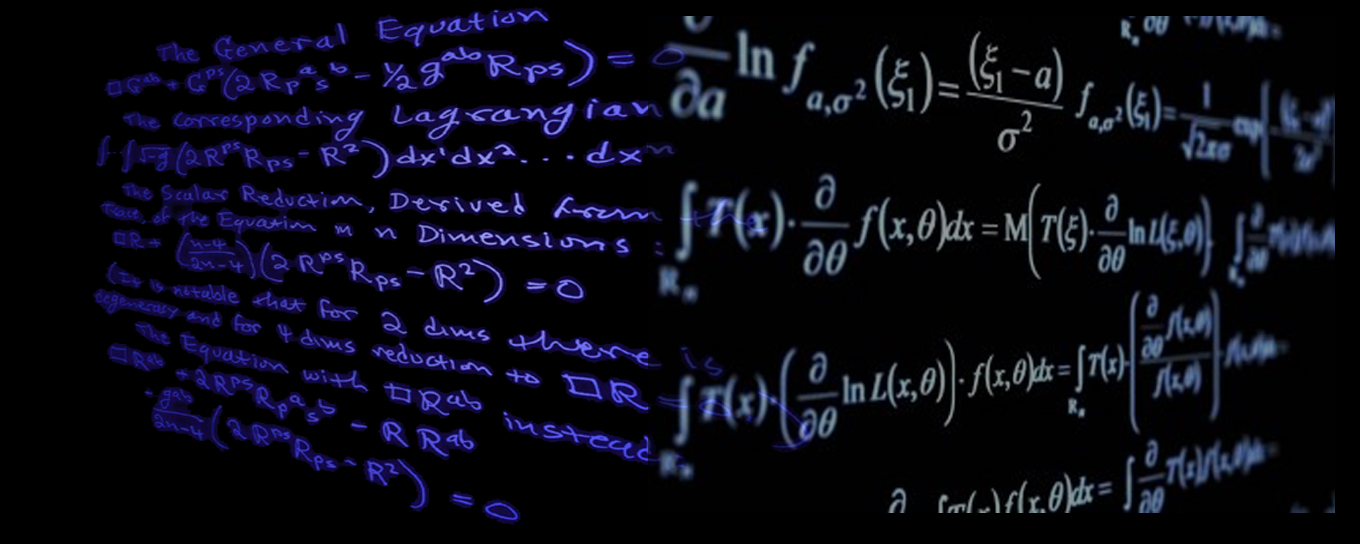 The General Equation
□Gᵃᵇ + Gᵖˢ(2Rₚᵃₛᵇ − ½gᵃᵇRps) = 0
The corresponding Lagrangian
∫··∫√−g(2RᵖˢRps − R²)dx¹dx²...dxⁿ
The Scalar Reduction, Derived from the
Trace, of the Equation in n Dimensions :
□R + (n−4/2n−4)(2RᵖˢRps − R²) = 0
(It is notable that for 2 dims there is
degeneracy and for 4 dims reduction to □R = 0.)
The Equation with □Rᵃᵇ instead:
□Rᵃᵇ + 2RᵖˢRₚᵃₛᵇ − R Rᵃᵇ
− gᵃᵇ/2n−4(2RᵖˢRps − R²) = 0
∂/∂a ln f a,σ²(ξ₁) = (ξ₁ − a)/σ² f a,σ²(ξ₁) = 1/√2πσ exp
∫ T(x)·∂/∂θ f(x,θ)dx = M(T(ξ)·∂/∂θ ln L(ξ,θ)) ∫ ∂/∂θ
Rₙ
∫ T(x)·(∂/∂θ ln L(x,θ))·f(x,θ)dx = ∫ T(x)·(∂/∂θ f(x,θ)/f(x,θ))
Rₙ Rₙ
∂ ∫T(x)f(x,θ)dx = ∫ ∂/∂θ T(x)f(x,θ)dx